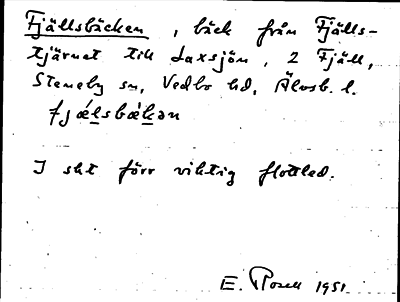 Fjällsbäcken, bäck från Fjälls-
tjärnet till Laxsjön, 2 Fjäll,
Steneby sn, Vedbo hd, Älvsb. l.
fjælsbækən
I skt förr viktig flottled.
E. Rosell 1951